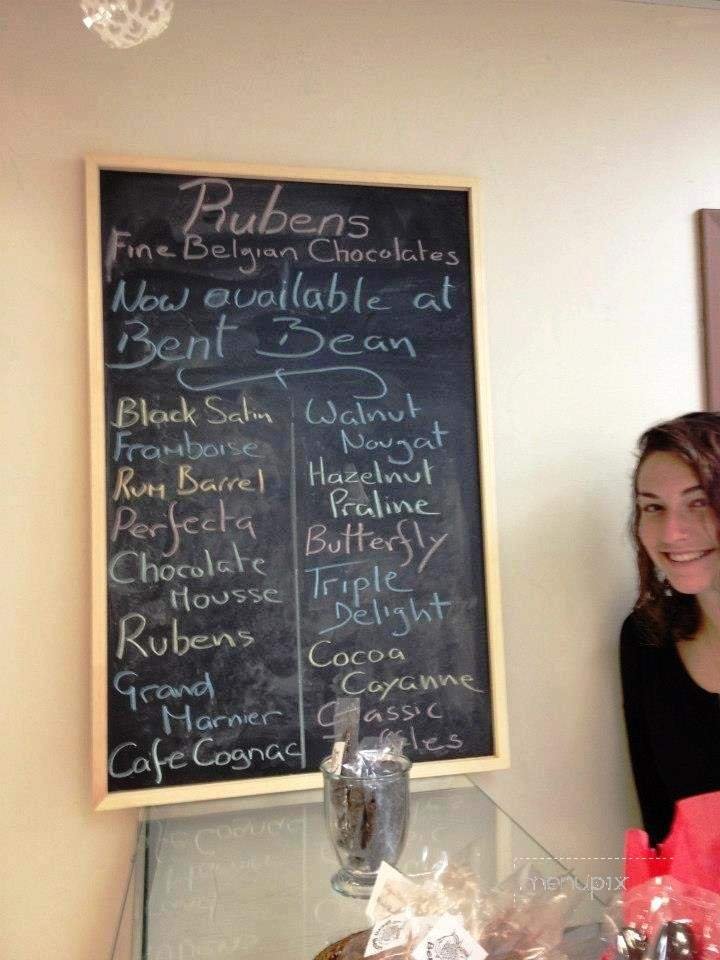 Rubens
Fine Belgian Chocolates
Now available at
Bent Bean
Black Satin
Framboise
Rum Barrel
Perfecta
Chocolate
Mousse
Rubens
Grand
Marnier
Cafe Cognac
Walnut
Nougat
Hazelnut
Praline
Butterfly
Triple
Delight
Cocoa
Cayanne
Classic
menupix